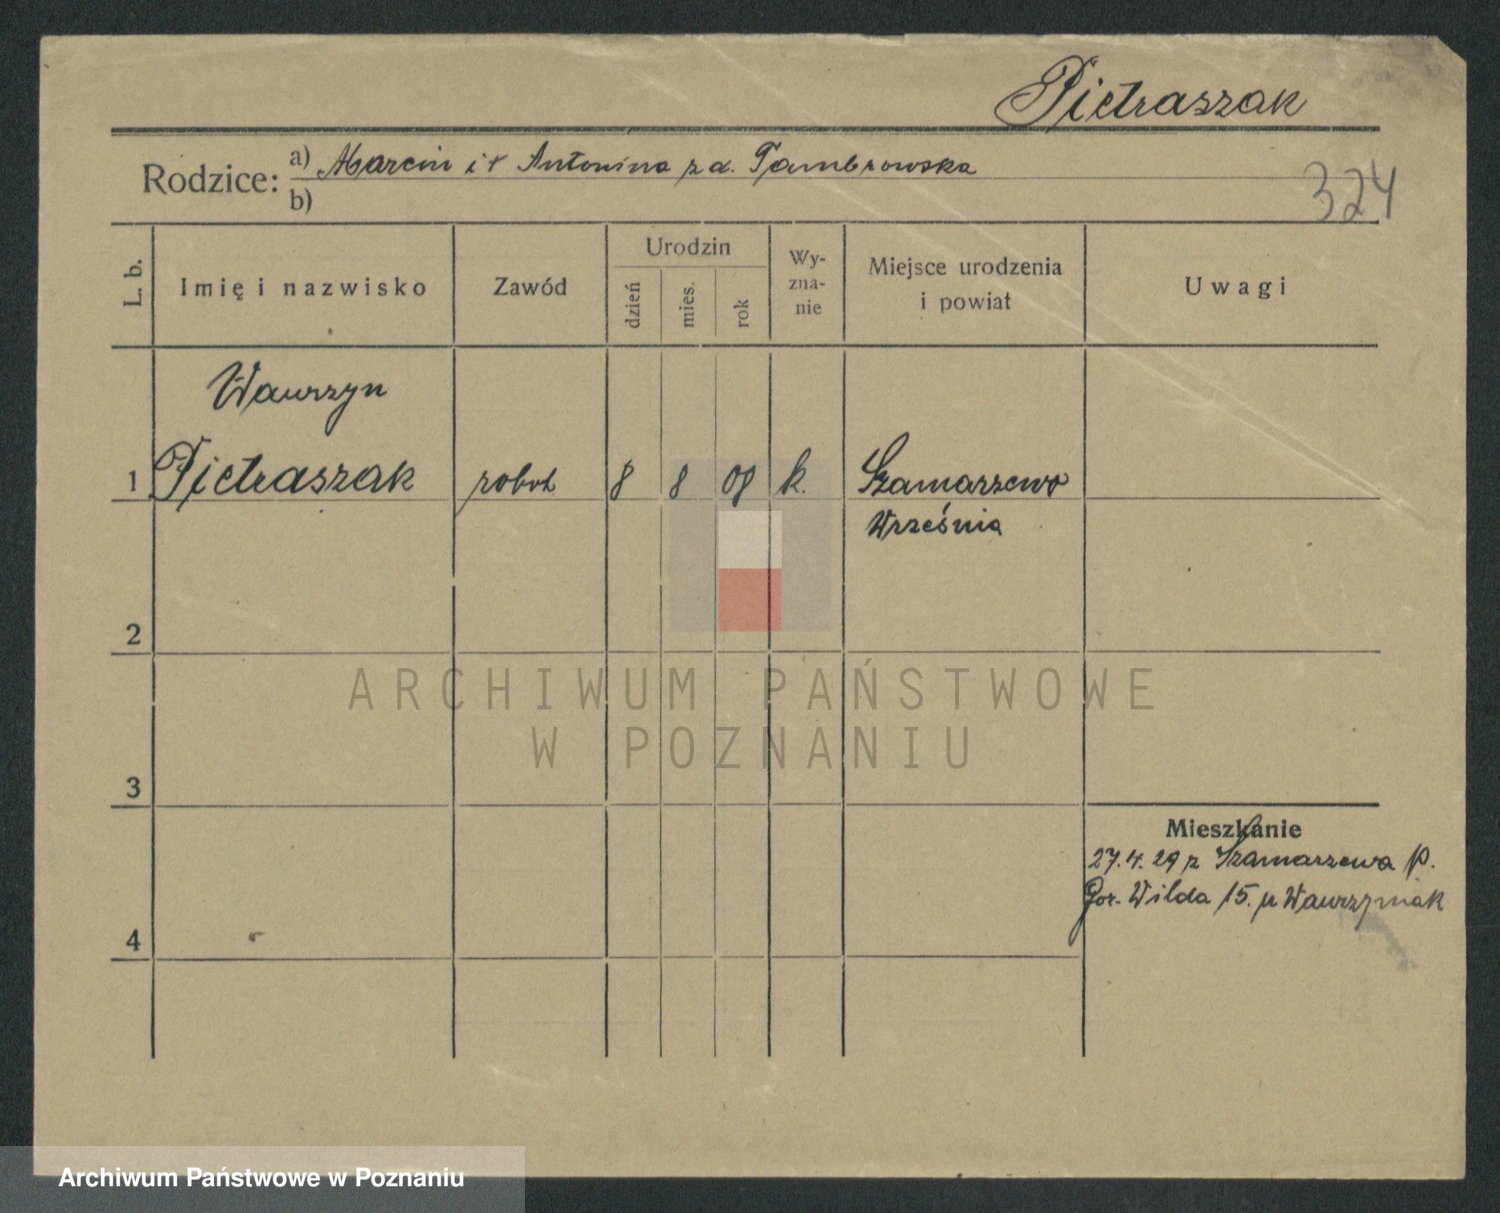 Pietraszak
Rodzice: a) Marcin i + Antonina z d. Tambrowska
b)
324
L. b.
Imię i nazwisko
Zawód
Urodzin
dzień
mies.
rok
Wy-
zna-
nie
Miejsce urodzenia
i powiat
Uwagi
Wawrzyn
1 Pietraszak robot 8 8 08 k. Szamarzewo
Września
2
3
4
Mieszkanie
27.4.29 z Szamarzewa p.
Gor. Wilda 15. u Wawrzyniak
ARCHIWUM PAŃSTWOWE
W POZNANIU
Archiwum Państwowe w Poznaniu